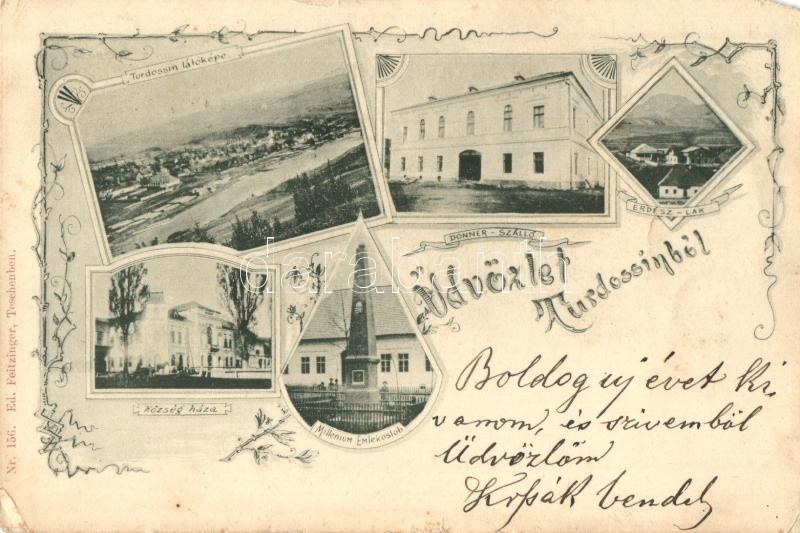 Turdossin látóképe
DONNER - SZÁLLÓ
ERDÉSZ - LAK
Üdvözlet
Turdossinból
Község háza
Millenium Emlékoslob
Boldog uj évet ki
vanom, és szivemből
Üdvözlöm
Krpák Vendel
Nr. 156. Ed. Feitzinger, Teschenbon.
darabanth.com